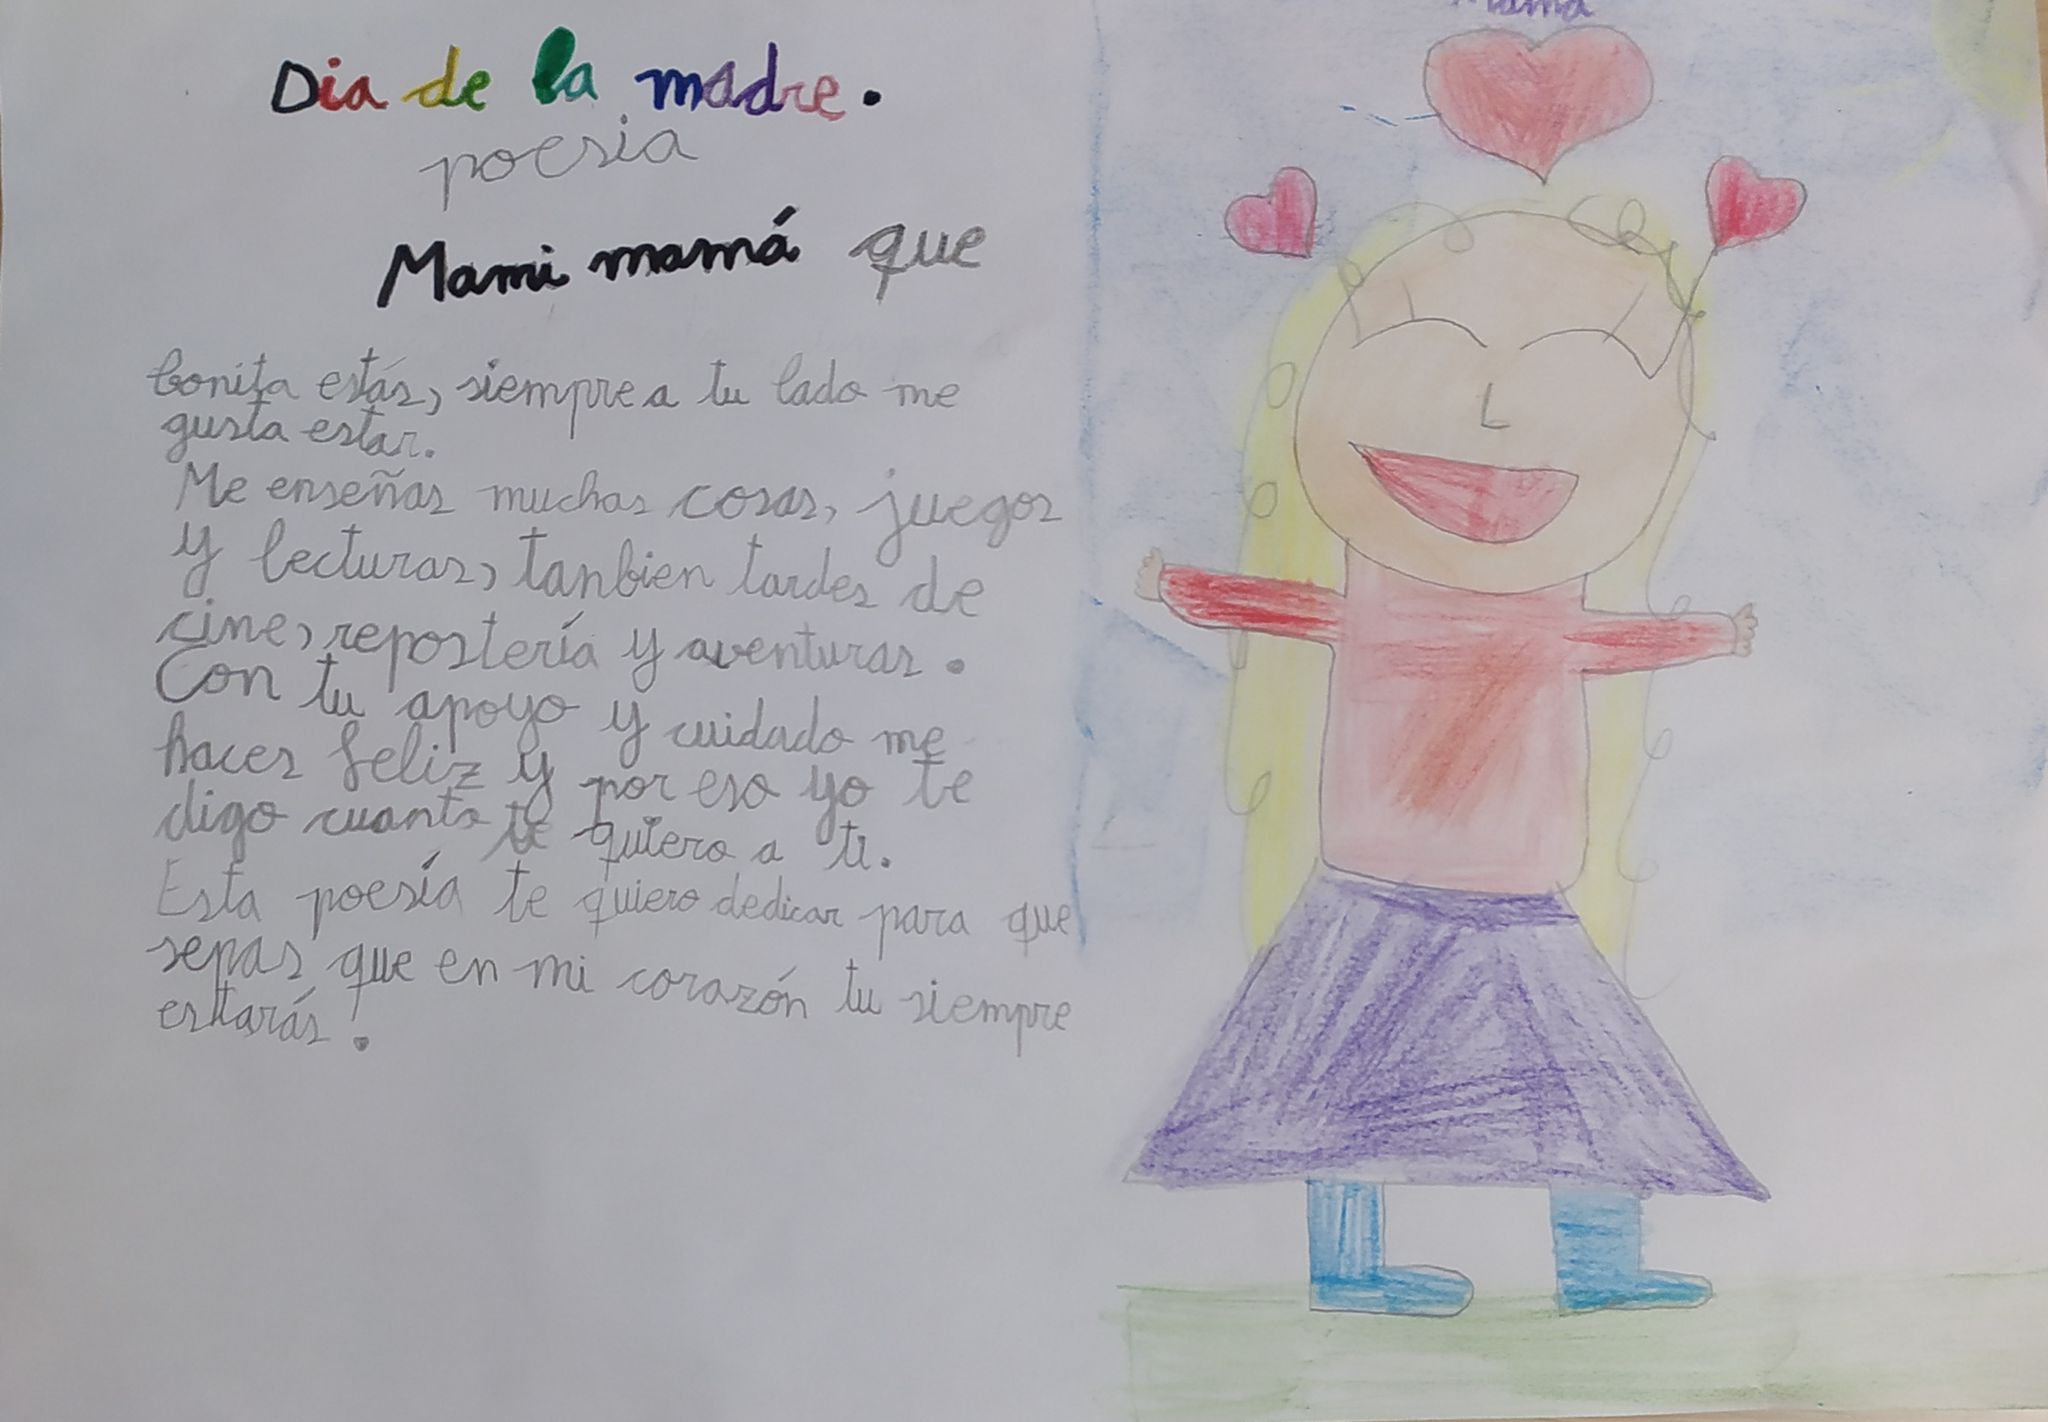 Dia de la madre.
poesia
Mami mamá que
bonita estás, siempre a tu lado me
gusta estar.
Me enseñas muchas cosas, juegos
y lecturas, tanbien tardes de
cine, repostería y aventuras.
Con tu apoyo y cuidado me
haces feliz y por eso yo te
digo cuanto te quiero a ti.
Esta poesía te quiero dedicar para que
sepas que en mi corazón tu siempre
estarás.
Mamá